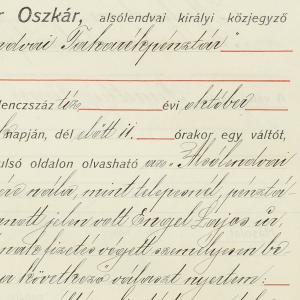 r Oszkár, alsólendvai királyi közjegyző
ndvai Takarékpénztár"
lenczszáz tíz évi október
napján, dél előtt 11 órakor egy váltót,
ulsó oldalon olvasható az „Alsólendvai
nála, mint telepesnél, pénztá-
jelen volt Engel Lajos úr,
fizetés végett személyesen be-
a következő választ nyertem: